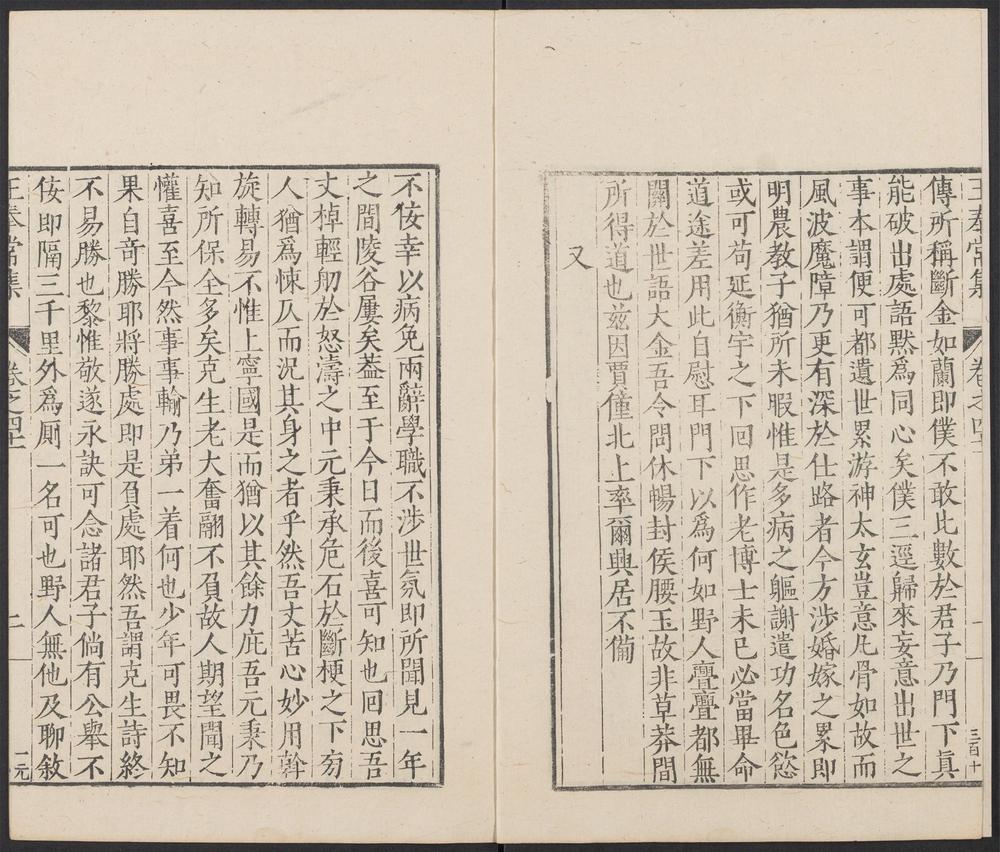 王奉常集
卷之四十
三百十
傳所稱斷金如蘭即僕不敢比數於君子乃門下真
能破出處語默為同心矣僕三逕歸來妄意出世之
事本謂便可都遺世累游神太玄豈意凡骨如故而
風波魔障乃更有深於仕路者今方涉婚嫁之累即
明農教子猶所未暇惟是多病之軀謝遣功名色慾
或可苟延衡宇之下回思作老博士未已必當畢命
道途差用此自慰耳門下以為何如野人亹亹都無
關於世語大金吾令問休暢封侯腰玉故非草莽間
所得道也茲因賈僮北上率爾興居不備
又
不佞幸以病免兩辭學職不涉世氛即所聞見一年
之間陵谷屢矣葢至于今日而後喜可知也回思吾
丈棹輕舠於怒濤之中元秉承危石於斷梗之下旁
人猶為悚仄而況其身之者乎然吾丈苦心妙用斡
旋轉易不惟上寧國是而猶以其餘力庇吾元秉乃
知所保全多矣克生老大奮翮不負故人期望聞之
懽喜至今然事事輸乃弟一着何也少年可畏不知
果自奇勝耶將勝處即是負處耶然吾謂克生詩終
不易勝也黎惟敬遂永訣可念諸君子倘有公舉不
佞即隔三千里外為厠一名可也野人無他及聊敘
王奉常集
卷之四十
二
元